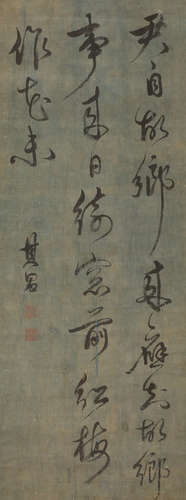 君自故鄉來應知故鄉
事來日綺窓前紅梅
作花未
其昌